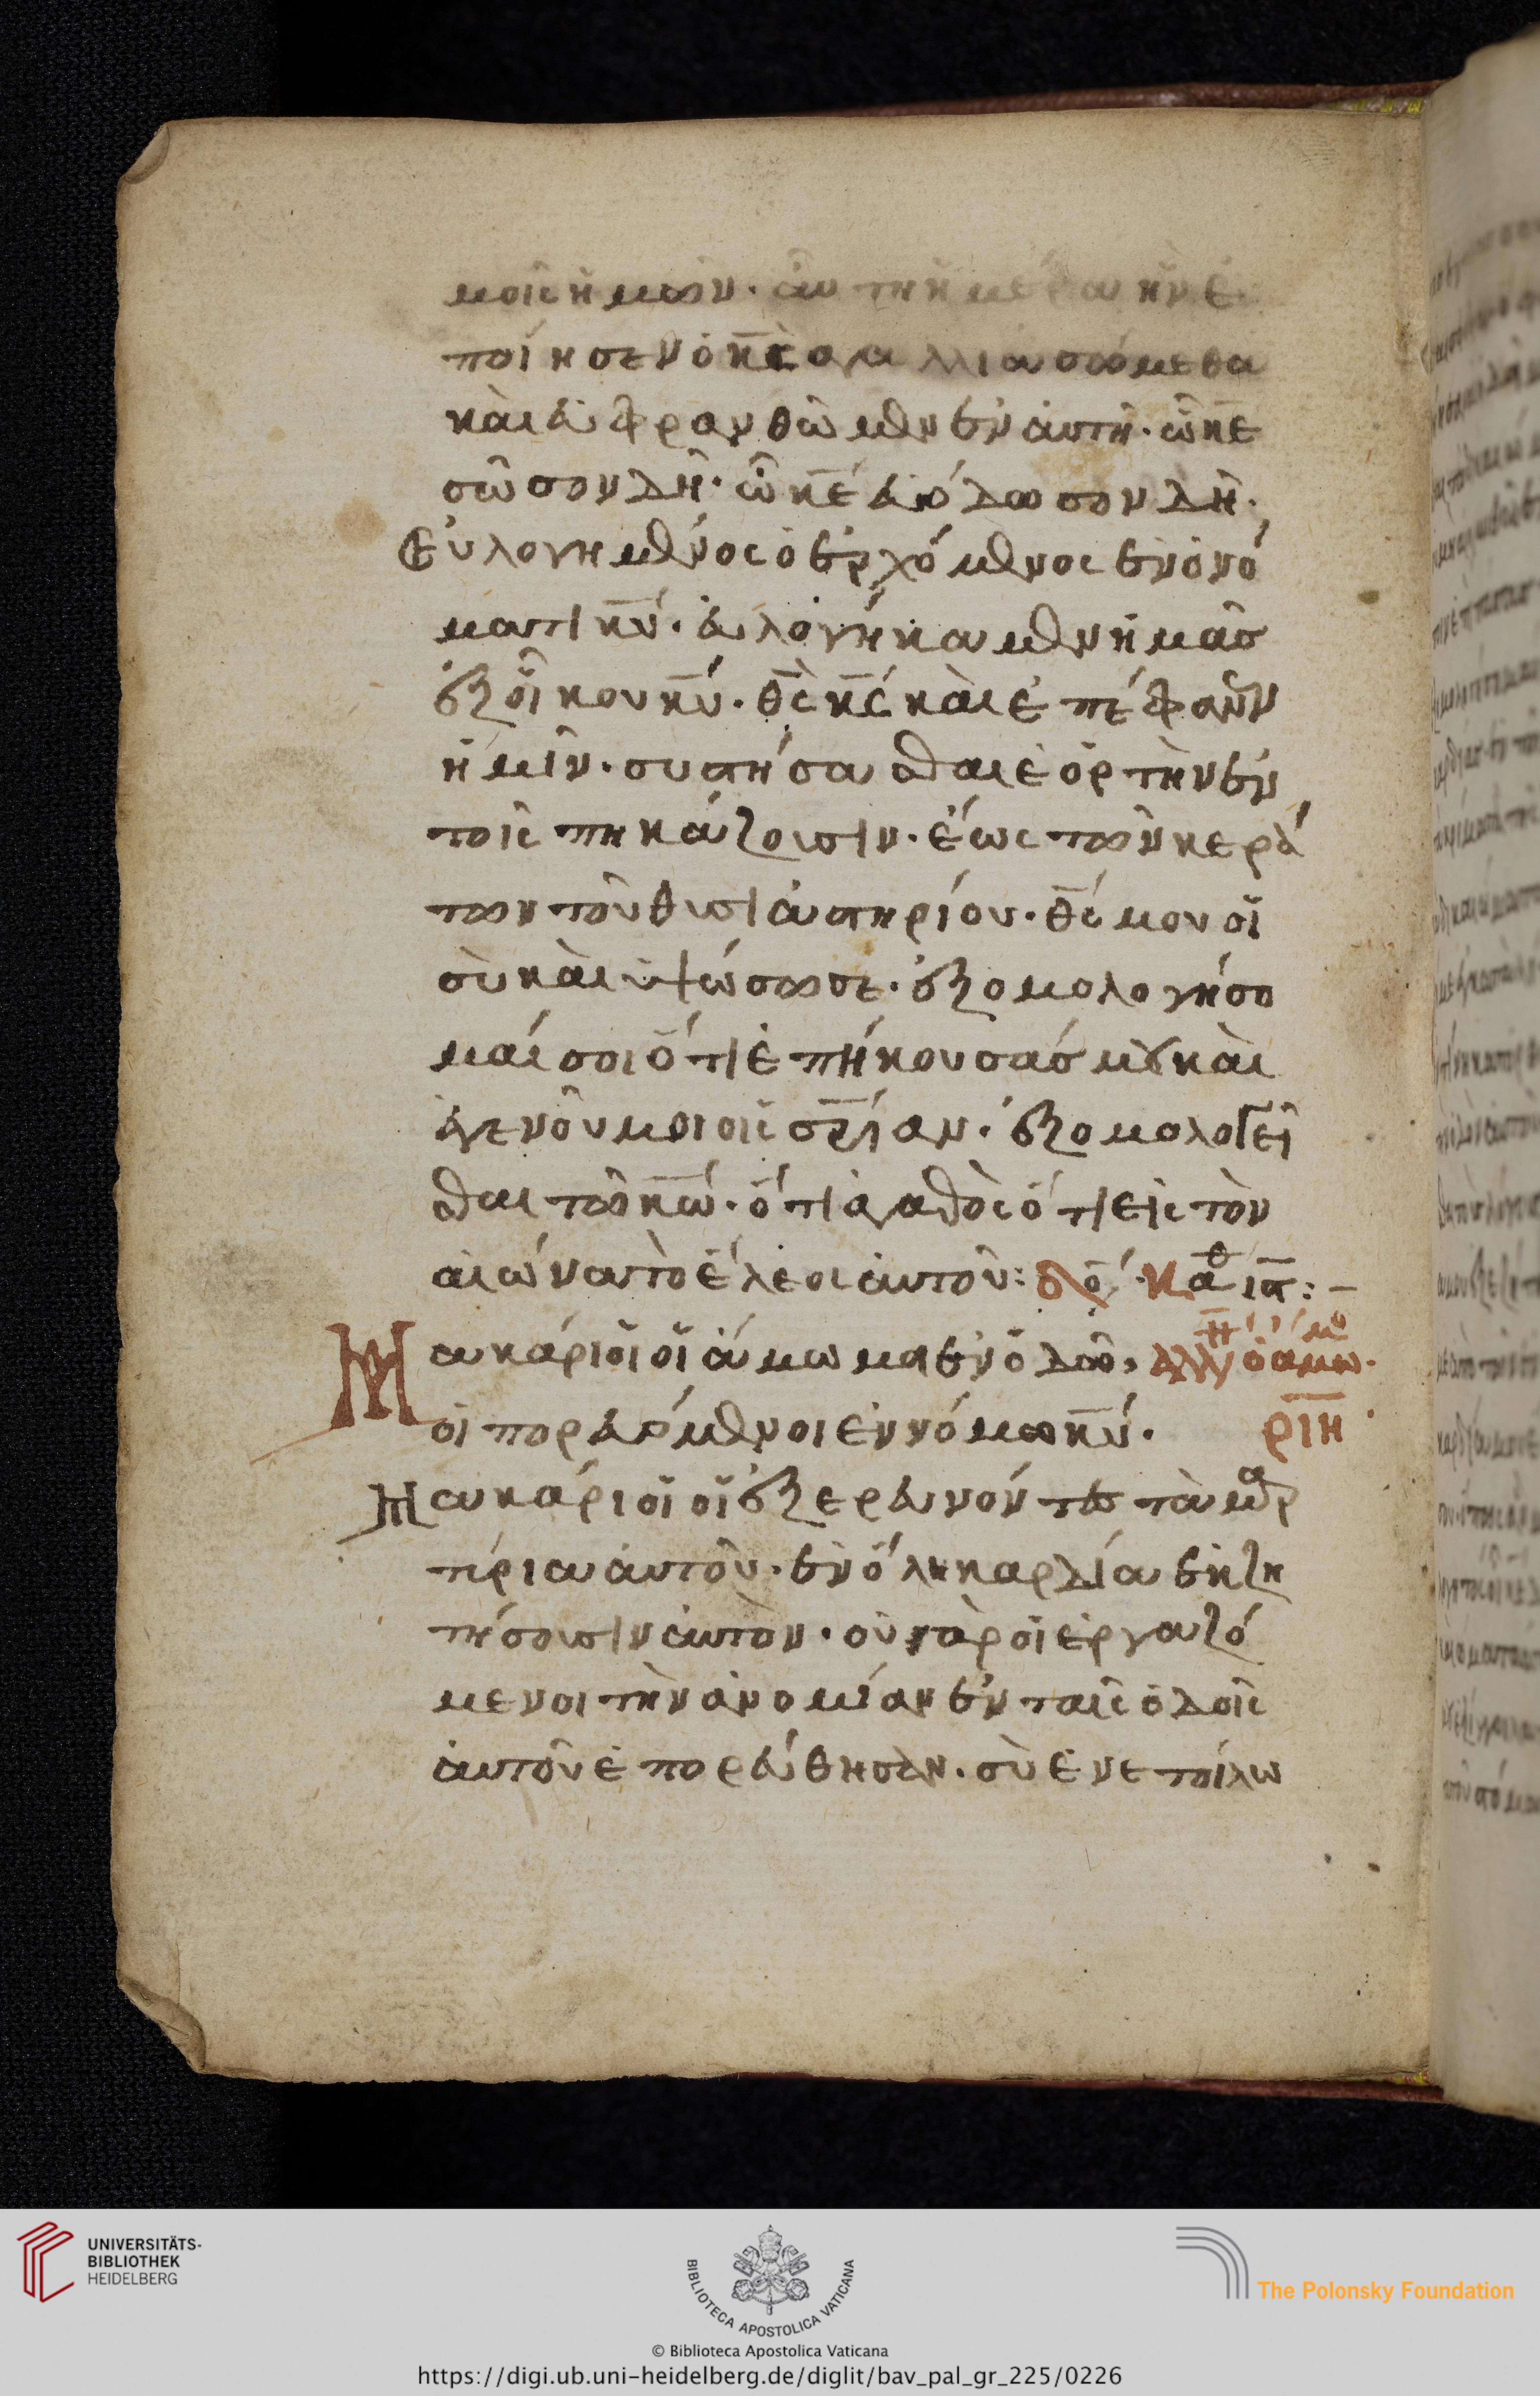 μοῖς ἡμῶν. αὕτη ἡ ἡμέρα ἣν ἐ
ποίησεν ὁ κ̅ς̅ ἀγαλλιασώμεθα
καὶ εὐφρανθῶμεν ἐν αὐτῆ. ὦ κ̅ε̅
σῶσον δὴ. ὦ κ̅ε̅ εὐόδωσον δὴ.
Εὐλογημένος ὁ ἐρχόμενος ἐν ὀνό
ματι κ̅υ̅. εὐλογήκαμεν ἡμᾶσ
ἐξ οἴκου κ̅υ̅. θ̅ς̅ κ̅ς̅ καὶ ἐπέφανεν
ἡμῖν. συστήσασθαι ἑορτὴν ἐν
τοῖς πηκάζουσιν. ἕως τῶν κερά
των τοῦ θυσιαστηρίου. θ̅ς̅ μου εἶ
σὺ καὶ ὑψώσω σε. ἐξομολογήσο
μαί σοι ὅτι ἐπήκουσάσ μου καὶ
ἐγένου μοι εἰς σ̅ρ̅ίαν. ἐξομολογεῖ
σθαι τῶ κ̅ω̅. ὅτι ἀγαθὸς ὅτι εἰς τὸν
αἰῶνα τὸ ἔλεος αὐτοῦ: δό. Κάθ ι̅α̅:–
Μακάριοι οἱ ἄμωμοι ἐν ὁδῶ, ἀλλη ὁ ἄμω.
οἱ πορευόμενοι ἐν νόμω κ̅υ̅. ρ̅ι̅η̅
Μακάριοι οἱ ἐξερευνούντες τὰ μαρ
τύρια αὐτοῦ. ἐν ὅλη καρδία ἐκζη
τήσουσιν αὐτὸν. οὐ γὰρ οἱ ἐργαζό
μενοι τὴν ἀνομίαν ἐν ταῖς ὁδοῖς
αὐτοῦ ἐπορεύθησαν. σὺ ἐνετείλω
UNIVERSITÄTS-
BIBLIOTHEK
HEIDELBERG
BIBLIOTECA APOSTOLICA VATICANA
The Polonsky Foundation
© Biblioteca Apostolica Vaticana
https://digi.ub.uni-heidelberg.de/diglit/bav_pal_gr_225/0226